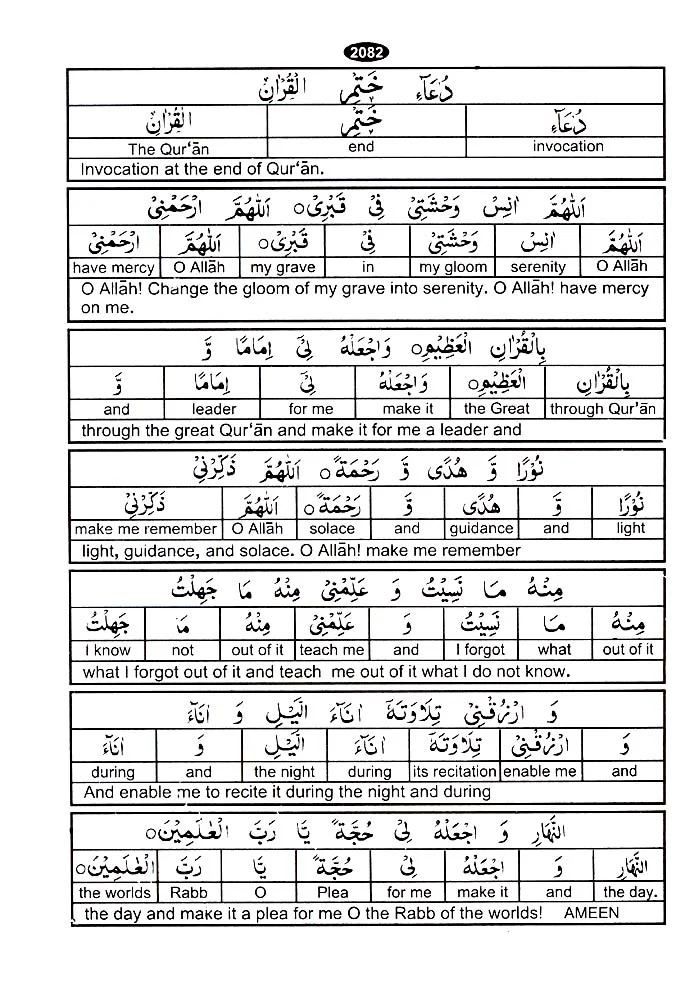 2082
دُعَآءِ خَتْمِ الْقُرْاٰنْ
دُعَآءِ خَتْمِ الْقُرْاٰنْ
The Qur‘ān end invocation
Invocation at the end of Qur‘ān.
اَللّٰهُمَّ اٰنِسْ وَحْشَتِیْ فِیْ قَبْرِیْ○ اَللّٰهُمَّ ارْحَمْنِیْ
اَللّٰهُمَّ اٰنِسْ وَحْشَتِیْ فِیْ قَبْرِیْ○ اَللّٰهُمَّ ارْحَمْنِیْ
have mercy O Allāh my grave in my gloom serenity O Allāh
O Allāh! Change the gloom of my grave into serenity. O Allāh! have mercy
on me.
بِالْقُرْاٰنِ الْعَظِيْمِ○ وَاجْعَلْهُ لِیْ اِمَامًا وَّ
بِالْقُرْاٰنِ الْعَظِيْمِ○ وَاجْعَلْهُ لِیْ اِمَامًا وَّ
and leader for me make it the Great through Qur‘ān
through the great Qur‘ān and make it for me a leader and
نُوْرًا وَّ هُدًی وَّ رَحْمَةً○ اَللّٰهُمَّ ذَكِّرْنِیْ
نُوْرًا وَّ هُدًی وَّ رَحْمَةً○ اَللّٰهُمَّ ذَكِّرْنِیْ
make me remember O Allāh solace and guidance and light
light, guidance, and solace. O Allāh! make me remember
مِنْهُ مَا نَسِيْتُ وَ عَلِّمْنِیْ مِنْهُ مَا جَهِلْتُ
مِنْهُ مَا نَسِيْتُ وَ عَلِّمْنِیْ مِنْهُ مَا جَهِلْتُ
I know not out of it teach me and I forgot what out of it
what I forgot out of it and teach me out of it what I do not know.
وَ ارْزُقْنِیْ تِلَاوَتَهٗ اٰنَآءَ الَّيْلِ وَ اٰنَآءَ
وَ ارْزُقْنِیْ تِلَاوَتَهٗ اٰنَآءَ الَّيْلِ وَ اٰنَآءَ
during and the night during its recitation enable me and
And enable me to recite it during the night and during
النَّهَارِ وَ اجْعَلْهُ لِیْ حُجَّةً يَّا رَبَّ الْعٰلَمِيْنَ○
النَّهَارِ وَ اجْعَلْهُ لِیْ حُجَّةً يَّا رَبَّ الْعٰلَمِيْنَ○
the worlds Rabb O Plea for me make it and the day.
the day and make it a plea for me O the Rabb of the worlds! AMEEN